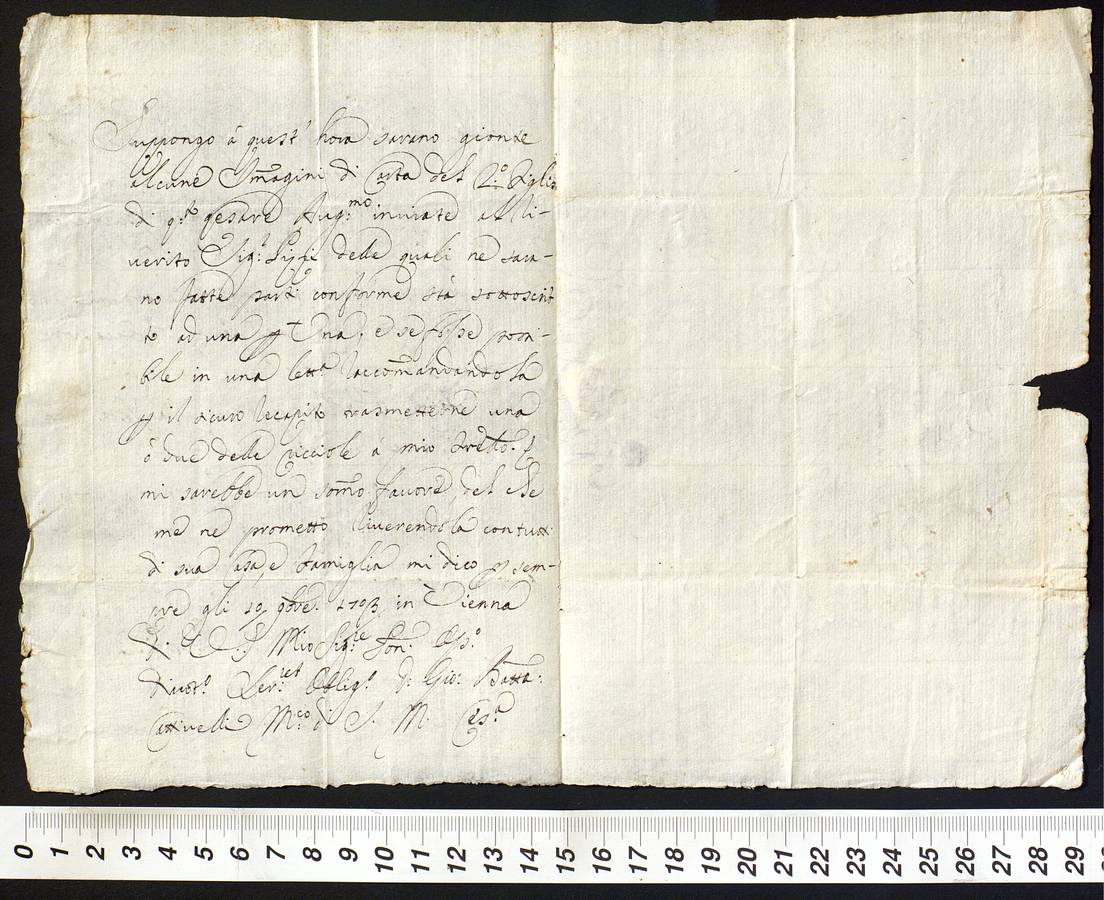 Suppongo à quest' hora sarano gionte
alcune Immagini di Carta del 2.o Figlio
di q.to Cesare Aug.mo inviate al Ri-
verito Sig.r Pizzi delle quali ne sara-
no fatte parti conforme stà sottoscrit
to ad una p Una, e se fosse possi-
bile in una lett.a Raccomandandola
p il sicuro recapito trasmetterne una
ò due delle picciole à mio Fratto.
mi sarebbe un somo favore, del che
me ne prometto Riverendola con tutti
di sua Casa, e Famiglia mi dico p sem-
pre gli 19 9bre. 1703 in Vienna
Di V. S. Mio Sig.re Pon. Oss.o
Divot.o Ser.re Oblig.o D: Gio: Batta:
Cattivelli M.co di S. M. Ces.a
0 1 2 3 4 5 6 7 8 9 10 11 12 13 14 15 16 17 18 19 20 21 22 23 24 25 26 27 28 29